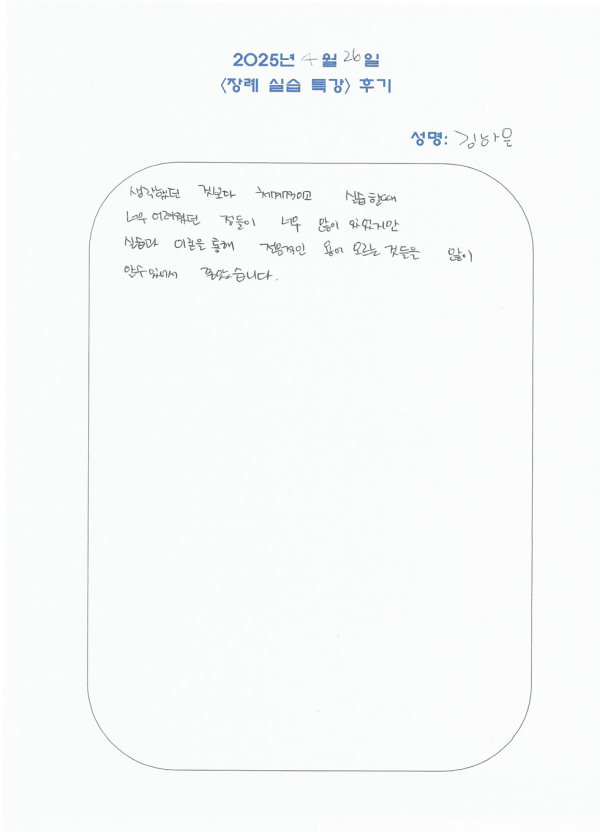 2025년 4월 26일
<장례 실습 특강> 후기
성명: 김하은
생각했던 것보다 체계적이고 실습할때
너무 어려웠던 점들이 너무 많이 있었지만
실습과 이론을 통해 전문적인 용어 모르는 것들을 많이
알수있어서 좋았습니다.